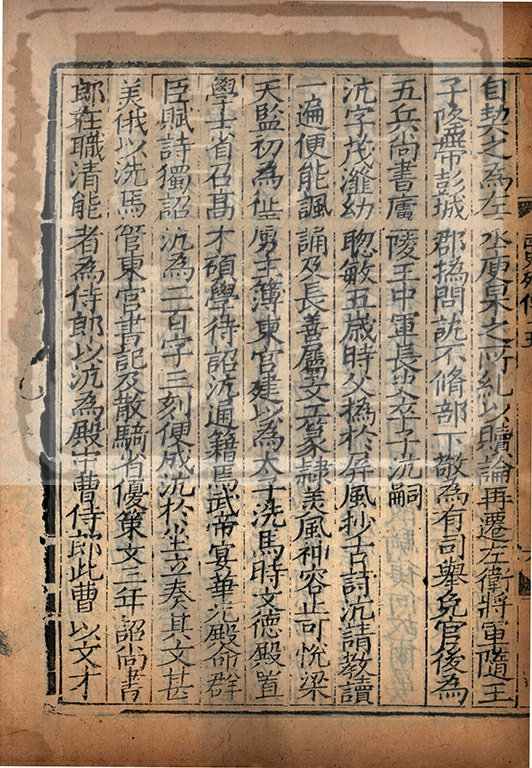 自契之為左丞庾杲之所糺以贖論再遷左衛將軍隨王
子隆帶彭城郡撝問訊不脩部下敬為有司舉免官後為
五兵尚書廬陵王中軍長史卒子沆嗣
沆字茂瀣幼聦敏五歲時父撝於屏風抄古詩沆請教讀
一遍便能諷誦及長善屬文工篆隷美風神容止可悅梁
天監初為征虜主簿東宮建以為太子洗馬時文德殿置
學士省召髙才碩學待詔沆通籍焉武帝宴華光殿命群
臣賦詩獨詔沆為二百字三刻便成沆於坐立奏其文甚
美俄以洗馬管東宮書記及散騎省優策文三年詔尚書
郎在職清能者為侍郎以沆為殿中曹侍郎此曹以文才